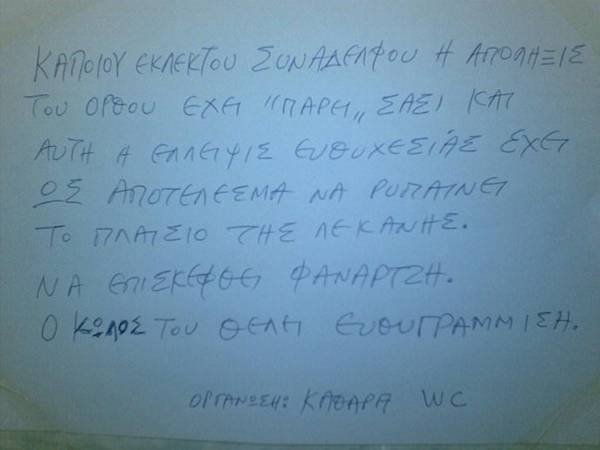 ΚΑΠΟΙΟΥ ΕΚΛΕΚΤΟΥ ΣΥΝΑΔΕΛΦΟΥ Η ΑΠΟΛΗΞΙΣ
ΤΟΥ ΟΡΘΟΥ ΕΧΕΙ "ΠΑΡΕΙ,, ΣΑΣΙ ΚΑΙ
ΑΥΤΗ Η ΕΛΛΕΙΨΙΣ ΕΥΘΥΧΕΣΙΆΣ ΈΧΕΙ
ΟΣ ΑΠΟΤΕΛΕΣΜΑ ΝΑ ΡΥΠΑΙΝΕΙ
ΤΟ ΠΛΑΙΣΙΟ ΤΗΣ ΛΕΚΑΝΗΣ.
ΝΑ ΕΠΙΣΚΕΦΘΕΙ ΦΑΝΑΡΤΖΗ.
Ο ΚΩΛΟΣ ΤΟΥ ΘΕΛΕΙ ΕΥΘΥΓΡΑΜΜΙΣΗ.
ΟΡΓΑΝΩΣΗ: ΚΑΘΑΡΑ WC